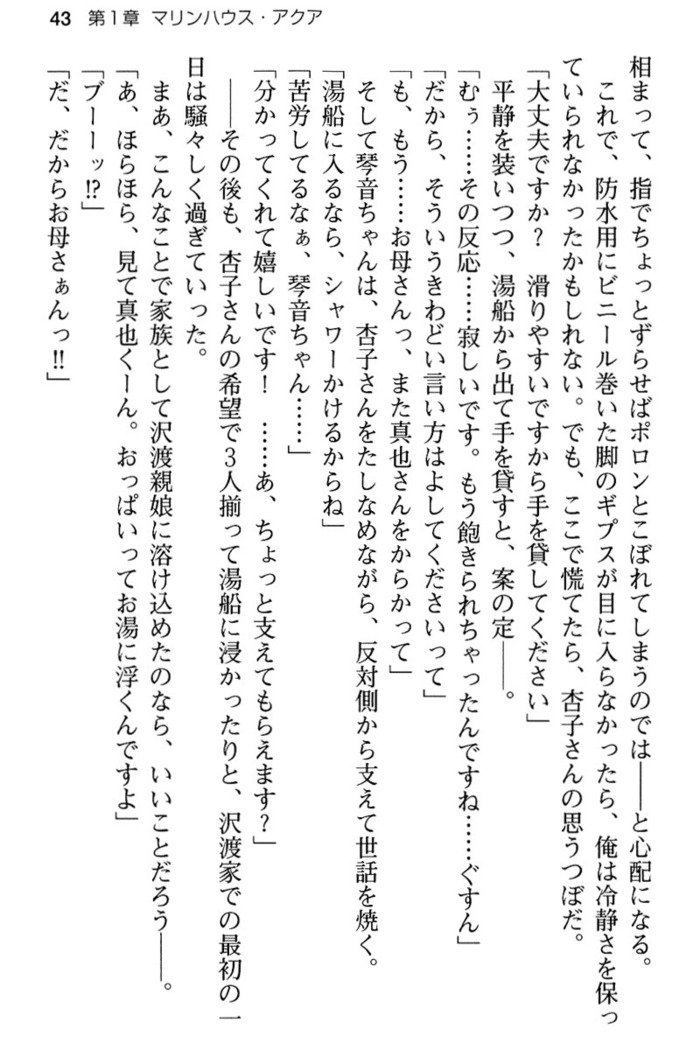 43 第1章 マリンハウス・アクア
相まって、指でちょっとずらせばポロンとこぼれてしまうのでは――と心配になる。
これで、防水用にビニール巻いた脚のギプスが目に入らなかったら、俺は冷静さを保っ
ていられなかったかもしれない。でも、ここで慌てたら、杏子さんの思うつぼだ。
「大丈夫ですか？　滑りやすいですから手を貸してください」
平静を装いつつ、湯船から出て手を貸すと、案の定――。
「むぅ……その反応……寂しいです。もう飽きられちゃったんですね……ぐすん」
「だから、そういうきわどい言い方はよしてくださいって」
「も、もう……お母さんっ、また真也さんをからかって」
そして琴音ちゃんは、杏子さんをたしなめながら、反対側から支えて世話を焼く。
「湯船に入るなら、シャワーかけるからね」
「苦労してるなぁ、琴音ちゃん……」
「分かってくれて嬉しいです！　……あ、ちょっと支えてもらえます？」
――その後も、杏子さんの希望で３人揃って湯船に浸かったりと、沢渡家での最初の一
日は騒々しく過ぎていった。
まあ、こんなことで家族として沢渡親娘に溶け込めたのなら、いいことだろう――。
「あ、ほらほら、見て真也くーん。おっぱいってお湯に浮くんですよ」
「ブーーッ!?」
「だ、だからお母さぁんっ!!」